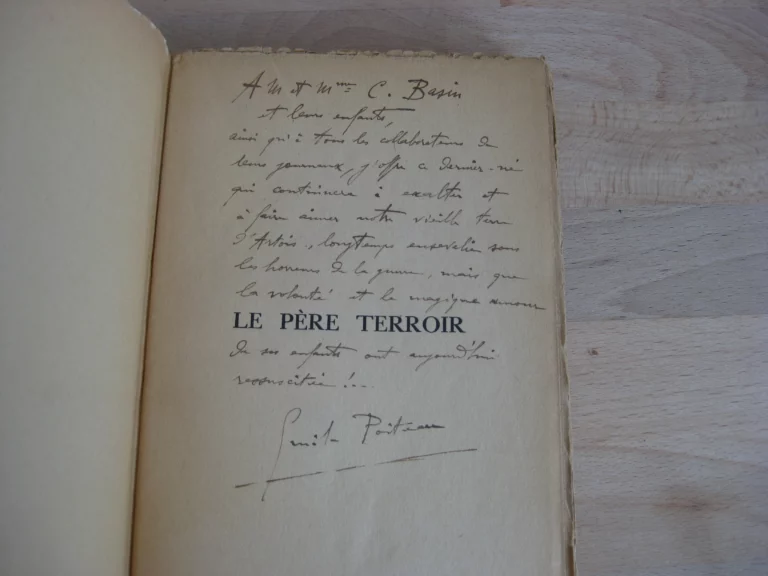 A M et Mme C. Basin
et leurs enfants,
ainsi qu'à tous les collaborateurs de
leurs journaux, j'offre ce dernier-né
qui continuera à exalter et
à faire aimer notre vieille terre
d'Artois, longtemps ensevelie sous
les horreurs de la guerre, mais que
la volonté et le magique amour
LE PÈRE TERROIR
de ses enfants ont aujourd'hui
ressuscitée !...
Emile Poiteau